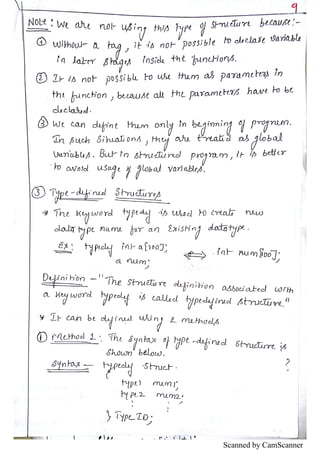 9
Note: We are not using this type of structure because:-
① Without a tag, it is not possible to declare variable
in later stages inside the functions.
② It is not possible to use them as parameters in
the function, because all the parameters have to be
declared.
③ We can define them only in beginning of program.
In such situations, they are treated as global
variables. But in structured program, it is better
to avoid usage of global variables.
③ Type-defined Structures
* The keyword typedef is used to create new
datatype name for an Existing datatype.
Ex: typedef int a[100]; int num[100];
a num;
Definition - "The structure definition associated with
a keyword typedef is called typedefined structure"
* It can be defined using 2 methods
① Method 1: The syntax of type-defined structure is
shown below.
Syntax - typedef struct ?
{
type1 mem1;
type2 mem2;
} TypeID;
Scanned by CamScanner